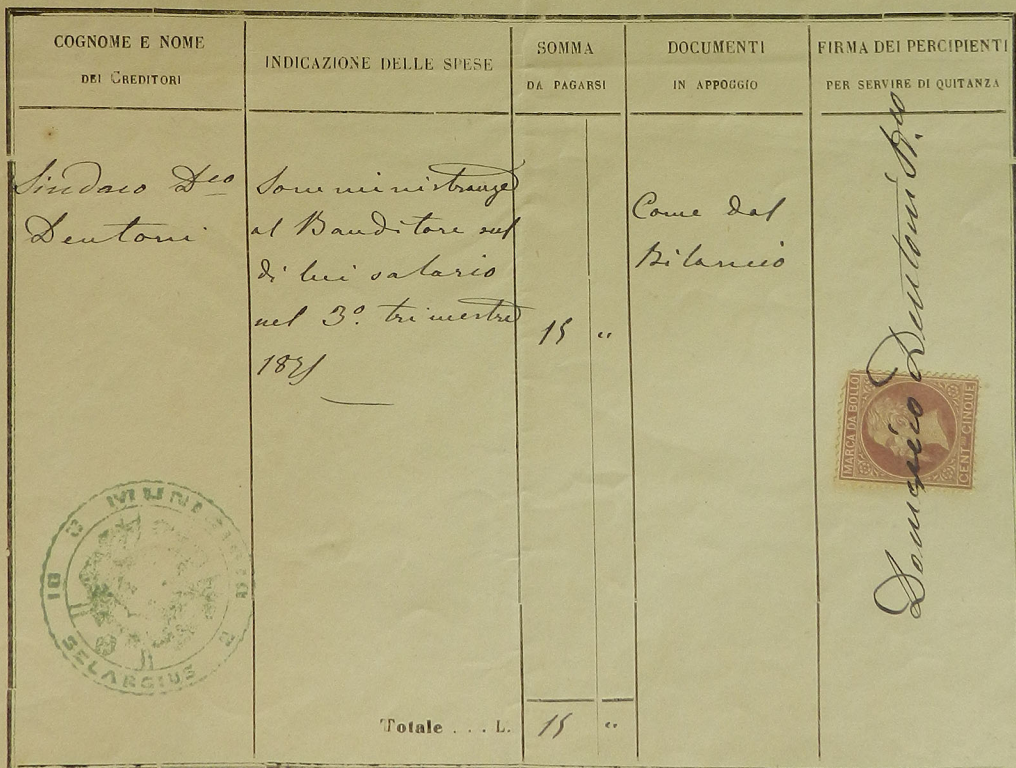 COGNOME E NOME
DEI CREDITORI
INDICAZIONE DELLE SPESE
SOMMA
DA PAGARSI
DOCUMENTI
IN APPOGGIO
FIRMA DEI PERCIPIENTI
PER SERVIRE DI QUITANZA
Sindaco Dco
Dentoni
Somministranze
al Banditore sul
di lui salario
nel 3º. trimestre
15 "
Come dal
Bilancio
Domenico Dentoni
MARCA DA BOLLO
CENT CINQUE
SELARGIUS
Totale . . . L. 15 "